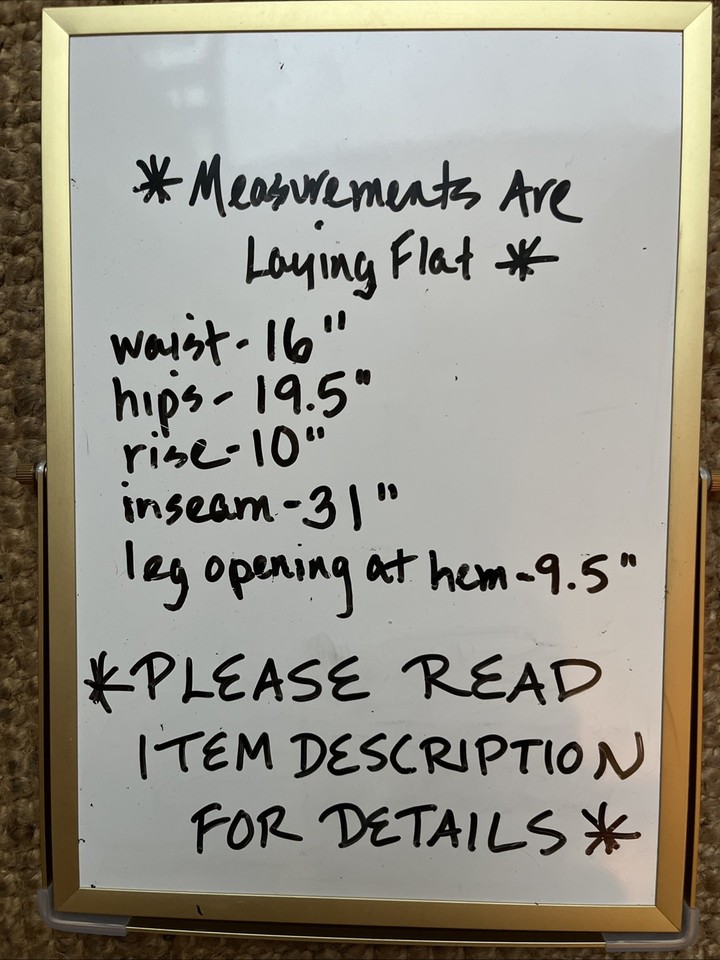 *Measurements Are
Laying Flat *
waist - 16"
hips - 19.5"
rise - 10"
inseam - 31"
leg opening at hem - 9.5"
*PLEASE READ
ITEM DESCRIPTION
FOR DETAILS *